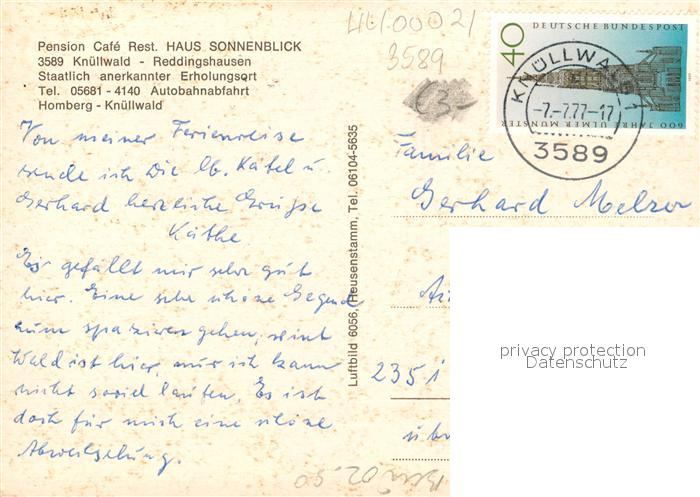 Pension Café Rest. HAUS SONNENBLICK
3589 Knüllwald - Reddingshausen
Staatlich anerkannter Erholungsort
Tel. 05681 - 4140 Autobahnabfahrt
Homberg - Knüllwald
Von meiner Ferienreise
sende ich Die lb. Kätel u.
Gerhard herzliche Grüße
Käthe
Es gefällt mir sehr gut
hier. Eine sehr schöne Gegend
zum spazieren gehen, weint
Wald ist hier, nur ich kann
nicht soviel laufen. Es ist
doch für mich eine schöne
Abwechslung.
Luftbild 6056, Heusenstamm, Tel. 06104-5635
3589
€3-
DEUTSCHE BUNDESPOST
40
600 JAHRE ULMER MÜNSTER
KNÜLLWALD 1
-7.-7.77-17
3589
Familie
Gerhard Melzer
2351
privacy protection
Datenschutz
02.50